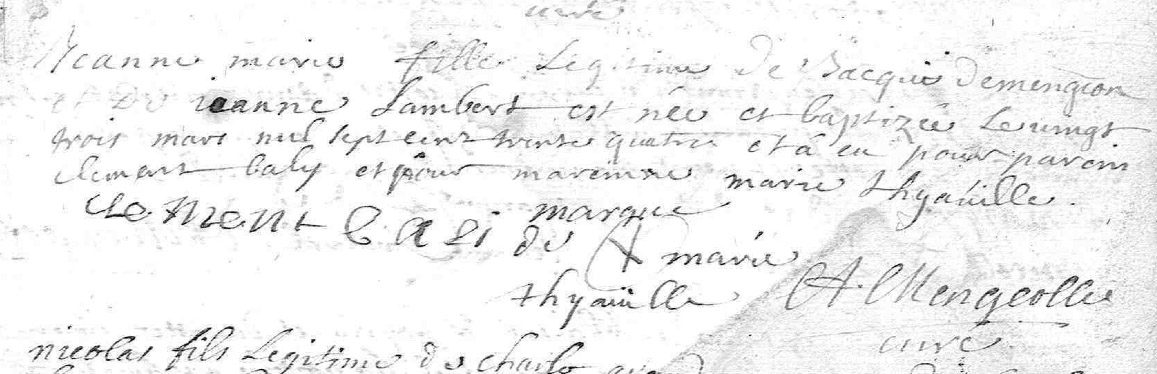 curé
Jeanne marie fille Legitime de Jacque demengeon
et de jeanne Lambert est née et baptizée Le vingt
trois mars mil sept cent trente quatre et a eu pour parein
clement baly et pour mareinne marie thyaville.
cleMent baLi marque
de X marie
thyaville A Mengeolle
curé
nicolas fils Legitime de charle